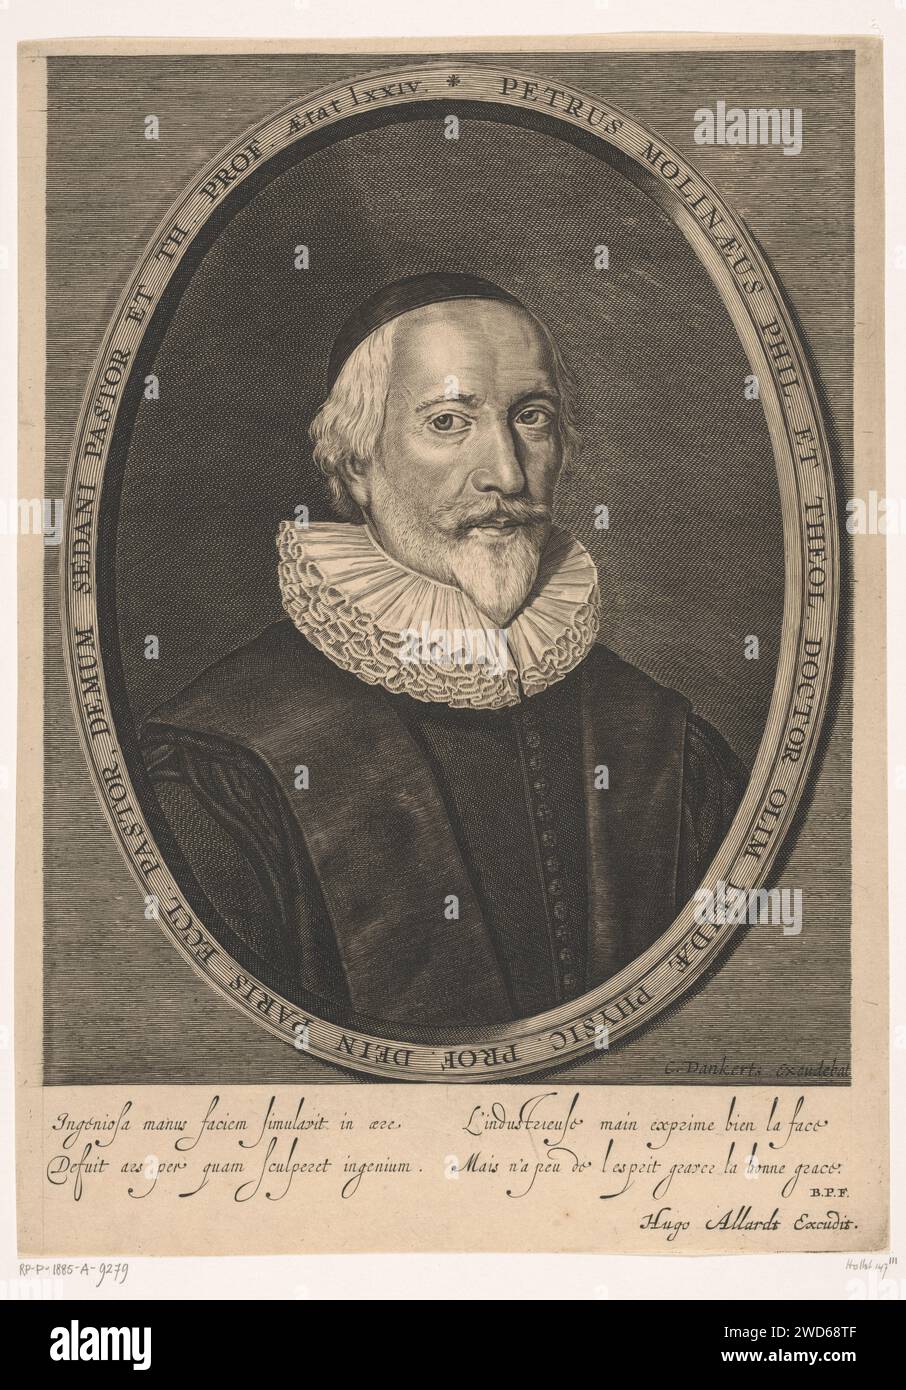 PETRUS MOLINÆUS PHIL. ET THEOL. DOCTOR OLIM LEIDÆ PHYSIC. PROF. DEIN PARIS. ECCL. PASTOR, DEMUM SEDANI PASTOR ET TH PROF. Ætat lxxiv. *
C. Dankerts Excudebat
Ingeniosa manus faciem simulavit in ære.
Defuit ars per quam sculperet ingenium.
L'industrieuse main exprime bien la face
Mais n'a peu de l'esprit graver la bonne grace.
B.P.F.
Hugo Allardt Excudit.
RP-P-1885-A-9279
Hollst 147 III
a
alamy
Image ID: 2WD68TF
www.alamy.com